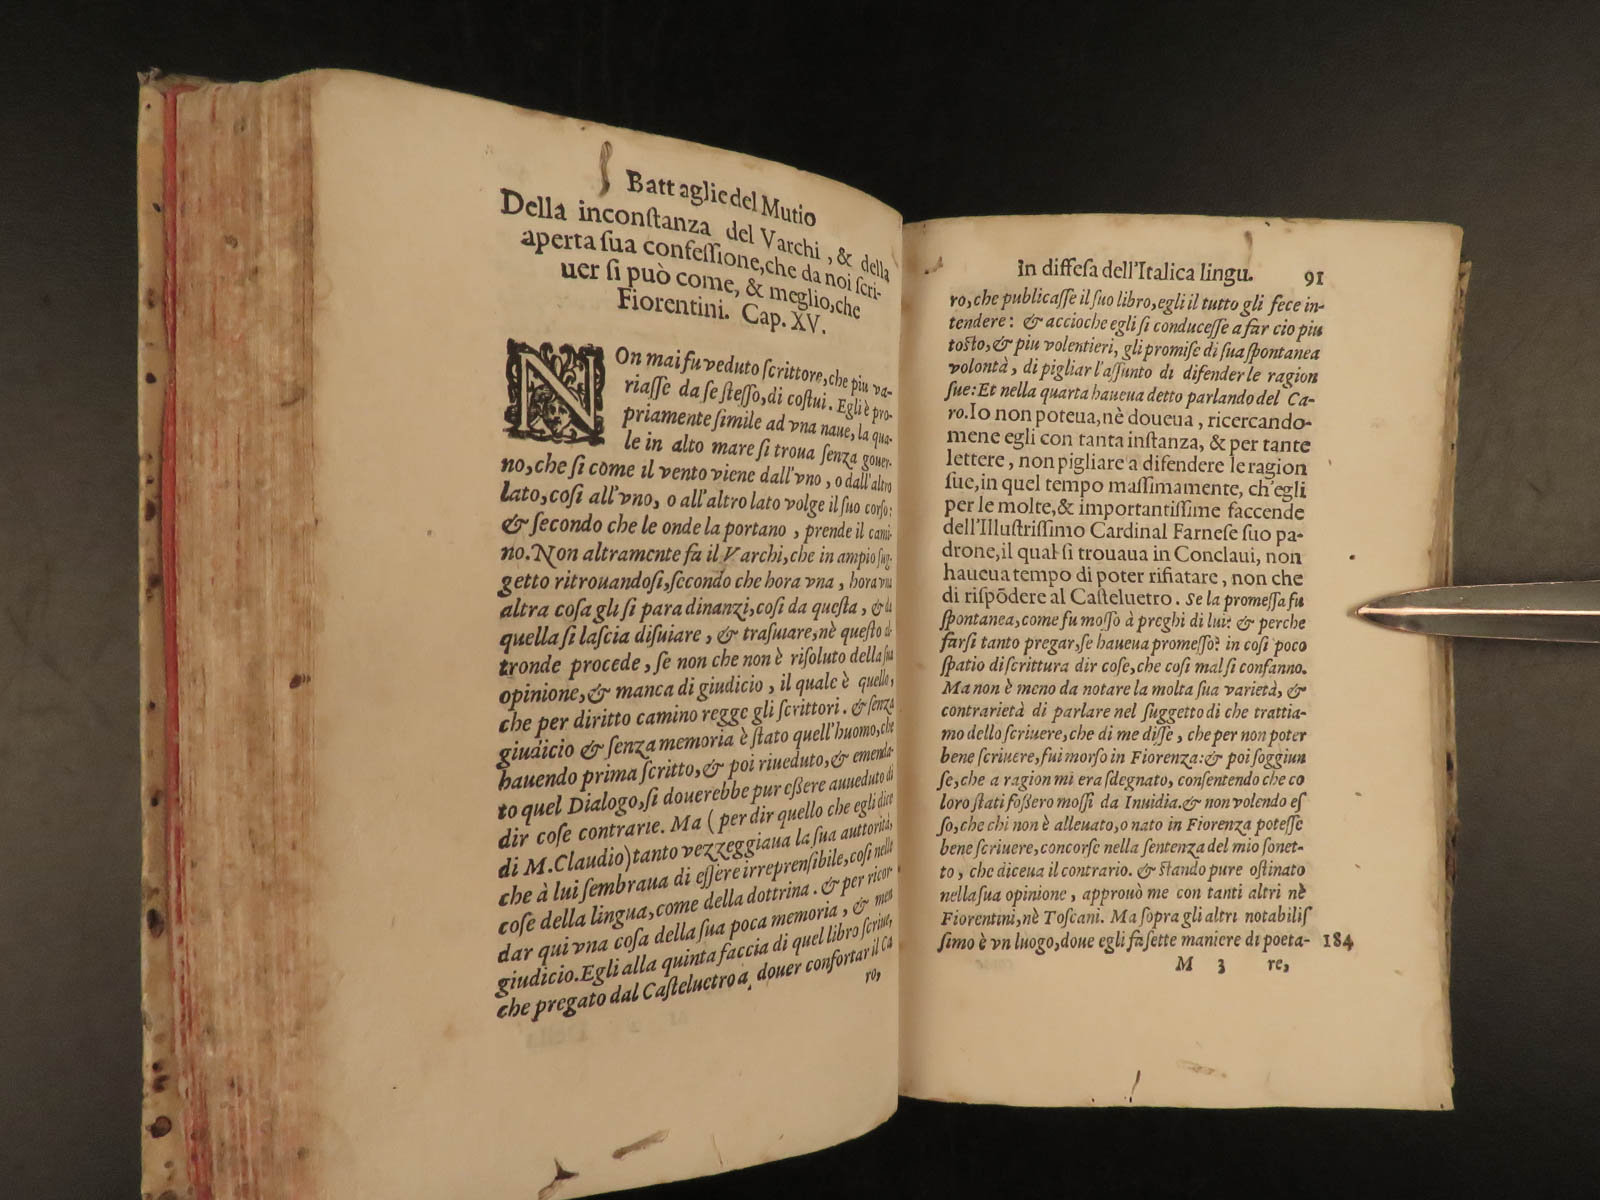 Battaglie del Mutio
Della inconſtanza del Varchi, & della
aperta ſua confeſſione, che da noi ſcri-
uer ſi può come, & meglio, che
Fiorentini. Cap. XV.
NOn mai fu veduto ſcrittore, che piu va-
riaſſe da ſe ſteſſo, di coſtui. Egli è pro-
priamente ſimile ad vna naue, la qua-
le in alto mare ſi troua ſenza gouer-
no, che ſi come il vento viene dall'vno, o dall'altro
lato, coſi all'vno, o all'altro lato volge il ſuo corſo:
& ſecondo che le onde la portano, prende il cami-
no. Non altramente fa il Varchi, che in ampio ſug-
getto ritrouandoſi, ſecondo che hora vna, hora vna
altra coſa gli ſi para dinanzi, coſi da queſta, & da
quella ſi laſcia diſuiare, & traſuiare, nè queſto d'
tronde procede, ſe non che non è riſoluto della ſua
opinione, & manca di giudicio, il quale è quello,
che per diritto camino regge gli ſcrittori. & ſenza
giudicio & ſenza memoria è ſtato quell'huomo, che
hauendo prima ſcritto, & poi riueduto, & emenda-
to quel Dialogo, ſi douerebbe pur eſſere auueduto di
dir coſe contrarie. Ma (per dir quello che egli dice
di M. Claudio) tanto vezzeggiaua la ſua auttorità,
che à lui ſembraua di eſſere irreprenſibile, coſi nelle
coſe della lingua, come della dottrina. & per ricor-
dar qui vna coſa della ſua poca memoria, & men
giudicio. Egli alla quinta faccia di quel libro ſcriue,
che pregato dal Caſteluetro a douer confortar il Ca
ro,
in diffeſa dell'Italica lingu. 91
ro, che publicaſſe il ſuo libro, egli il tutto gli fece in-
tendere: & accioche egli ſi conduceſſe a far cio piu
toſto, & piu volentieri, gli promiſe di ſua ſpontanea
volontà, di pigliar l'aſſunto di difender le ragion
ſue: Et nella quarta haueua detto parlando del Ca-
ro. Io non poteua, nè doueua, ricercando-
mene egli con tanta inſtanza, & per tante
lettere, non pigliare a difendere le ragion
ſue, in quel tempo maſſimamente, ch'egli
per le molte, & importantiſſime faccende
dell'Illuſtriſſimo Cardinal Farneſe ſuo pa-
drone, il qual ſi trouaua in Conclaui, non
haueua tempo di poter rifiatare, non che
di riſpõdere al Caſteluetro. Se la promeſſa fu
ſpontanea, come fu moſſo à preghi di lui? & perche
farſi tanto pregar, ſe haueua promeſſo? in coſi poco
ſpatio di ſcrittura dir coſe, che coſi mal ſi confanno.
Ma non è meno da notare la molta ſua varietà, &
contrarietà di parlare nel ſuggetto di che trattia-
mo dello ſcriuere, che di me diſſe, che per non poter
bene ſcriuere, fui morſo in Fiorenza: & poi ſoggiun
ſe, che a ragion mi era ſdegnato, conſentendo che co
loro ſtati foſſero moſſi da Inuidia. & non volendo eſ
ſo, che chi non è alleuato, o nato in Fiorenza poteſſe
bene ſcriuere, concorſe nella ſentenza del mio ſonet-
to, che diceua il contrario. & ſtando pure oſtinato
nella ſua opinione, approuò me con tanti altri nè
Fiorentini, nè Toſcani. Ma ſopra gli altri notabiliſ
ſimo è vn luogo, doue egli fa ſette maniere di poeta- 184
M 3 re,